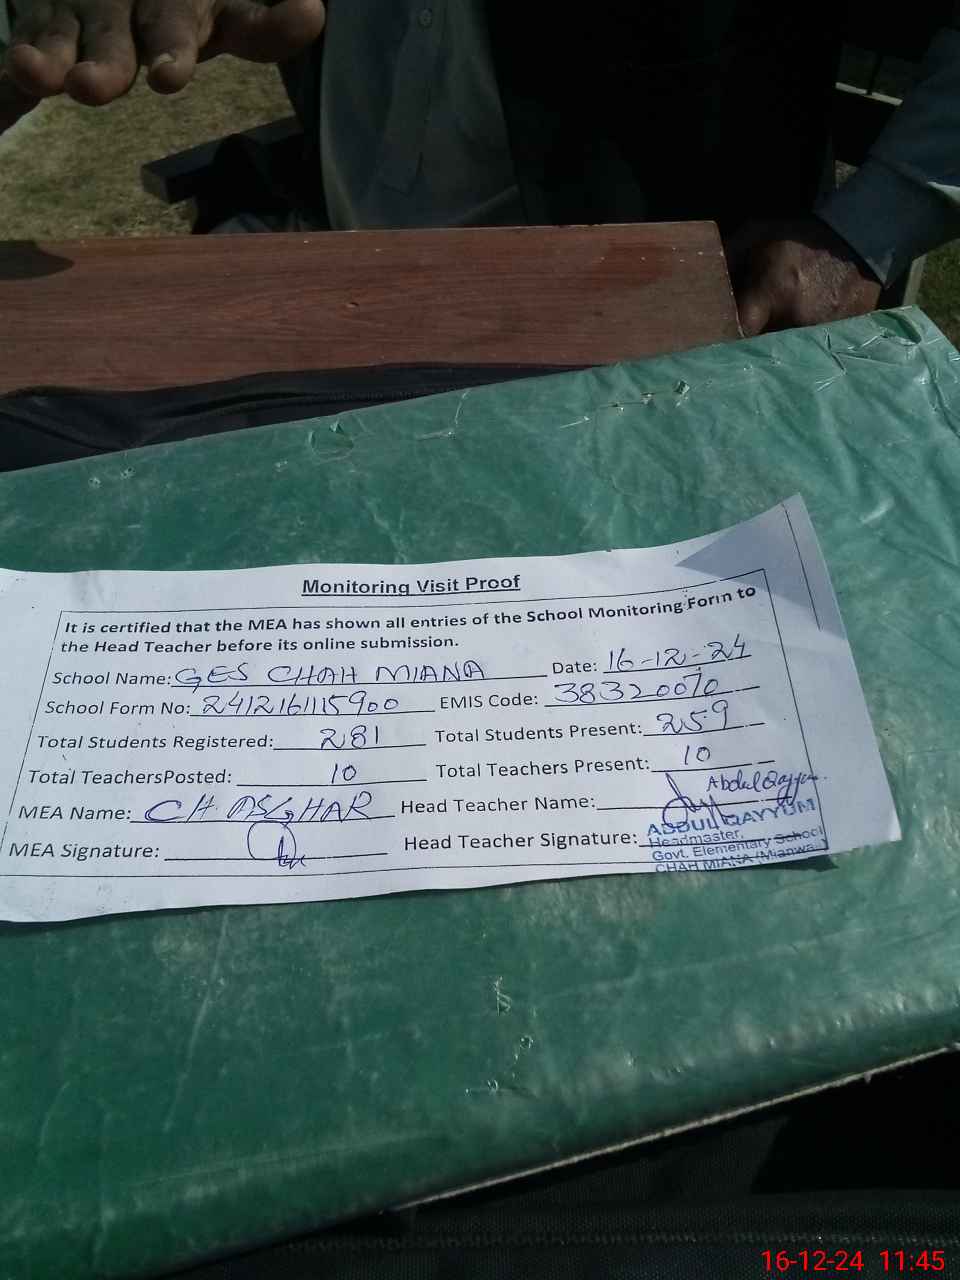 Monitoring Visit Proof
It is certified that the MEA has shown all entries of the School Monitoring Form to
the Head Teacher before its online submission.
School Name: GES CHAH MIANA Date: 16-12-24
School Form No: 2412161115900 EMIS Code: 38320070
Total Students Registered: 281 Total Students Present: 259
Total TeachersPosted: 10 Total Teachers Present: 10
MEA Name: CH ASGHAR Head Teacher Name: Abdul Qayyum
MEA Signature: Head Teacher Signature:
ABDUL QAYYUM
Headmaster,
Govt. Elementary School
CHAH MIANA (Mianwali)
16-12-24 11:45